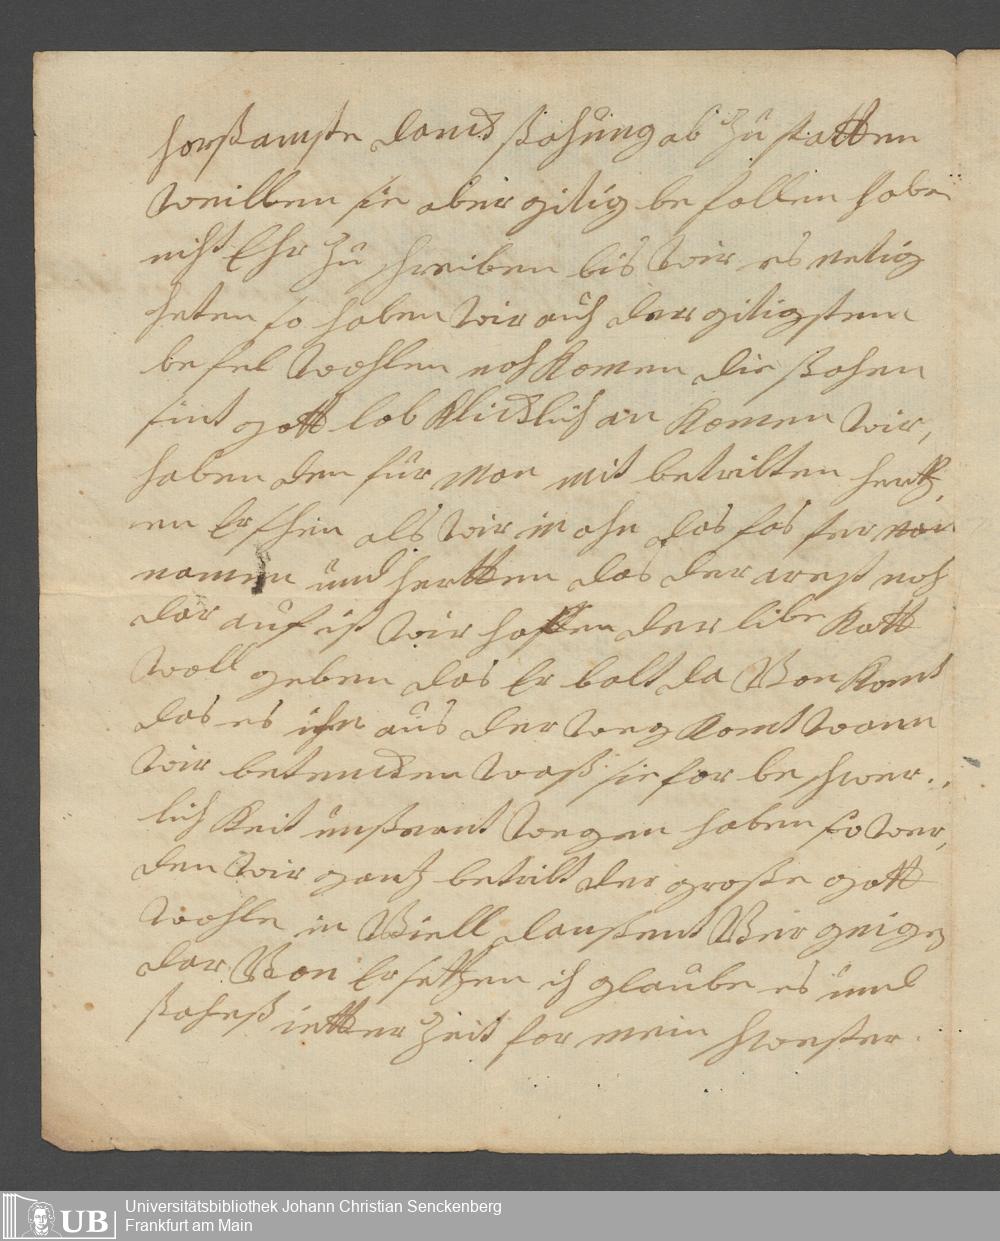 horßamste danck ßagung ab zu statten
weillen sie aber gitig be follen habe
nicht Ehr zu schreiben bis wir es netig
heten so haben wir auch der gitigsten
be fel wohlen noch komen die ßachen
sint gott lob klicklich an komen wir,
haben den fur man mit betribten hertz,
en Er sehen als wir in ohn das fas fer
namen und hertten das der arest noch
dar auf ist wir hoffen der libe Kott
woll geben das Er balt da Von komt
das es ihn aus der weg komt wann
wir betencken waß sie for be schwer,
lich keit unßrent wegen haben so wer,
den wir gantz betribt der große gott
wohle in Viell daußent Ver
dar Von Er setzen ich glaube es
ßaheß ietter Zeit for mein schwester
Universitätsbibliothek Johann Christian Senckenberg
Frankfurt am Main
UB